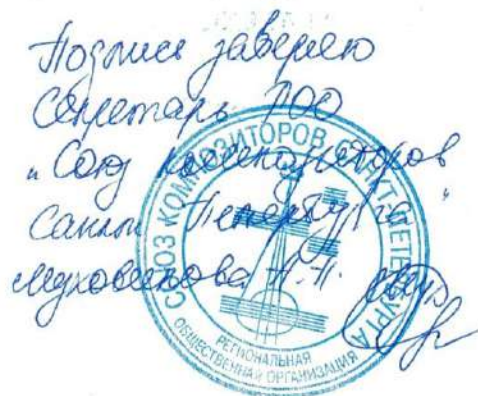 Подпись заверяю
Секретарь РОО
„Союз композиторов
Санкт Петербурга"
Муховикова
СОЮЗ КОМПОЗИТОРОВ САНКТ-ПЕТЕРБУРГА
РЕГИОНАЛЬНАЯ
ОБЩЕСТВЕННАЯ ОРГАНИЗАЦИЯ